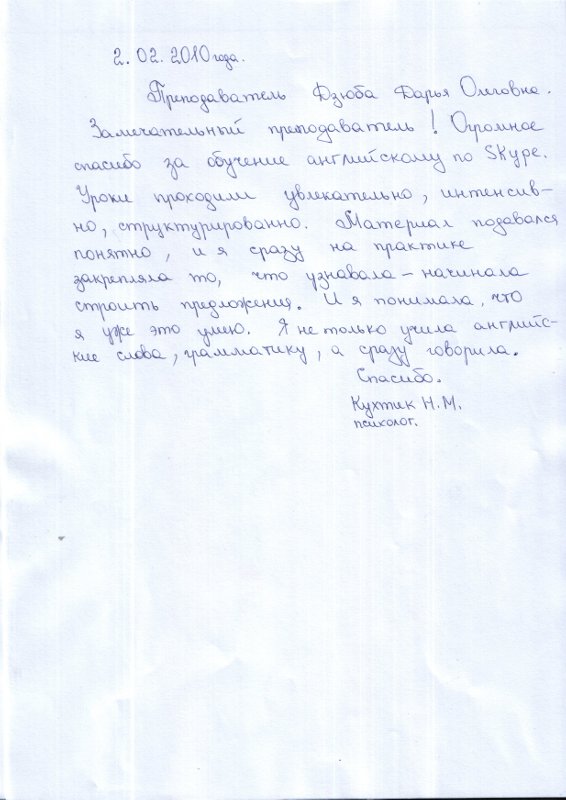 2. 02. 2010 года.
Преподаватель Дзюба Дарья Олеговна.
Замечательный преподаватель! Огромное
спасибо за обучение английскому по Skype.
Уроки проходили увлекательно, интенсив-
но, структурированно. Материал подавался
понятно, и я сразу на практике
закрепляла то, что узнавала – начинала
строить предложения. И я понимала, что
я уже это умею. Я не только учила английс-
кие слова, грамматику, а сразу говорила.
Спасибо.
Кухтик Н.М.
психолог.